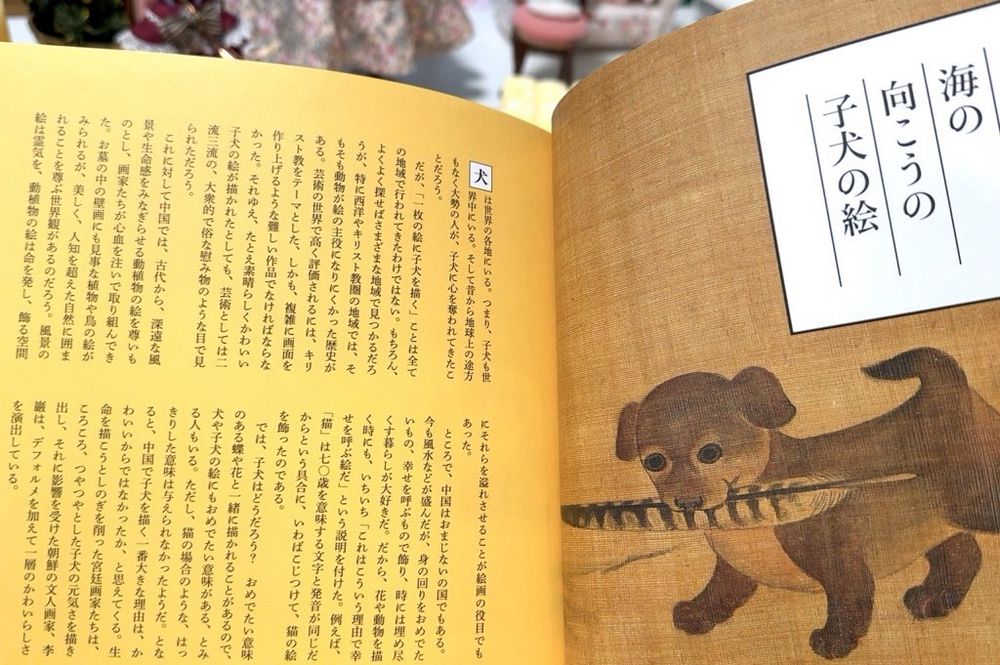 海の
向こうの
子犬の絵
犬は世界の各地にいる。つまり、子犬も世
界中にいる。そして昔から地球上の途方
もなく大勢の人が、子犬に心を奪われてきたこ
とだろう。
だが、「一枚の絵に子犬を描く」ことは全て
の地域で行われてきたわけではない。もちろん、
よくよく探せばさまざまな地域で見つかるだろ
うが、特に西洋やキリスト教圏の地域では、そ
もそも動物が絵の主役になりにくかった歴史が
ある。芸術の世界で高く評価されるには、キリ
スト教をテーマとした、しかも、複雑に画面を
作り上げるような難しい作品でなければならな
かった。それゆえ、たとえ素晴らしくかわいい
子犬の絵が描かれたとしても、芸術としては二
流三流の、大衆的で俗な慰み物のような目で見
られただろう。
これに対して中国では、古代から、深遠な風
景や生命感をみなぎらせる動植物の絵を尊いも
のとし、画家たちが心血を注いで取り組んでき
た。お墓の中の壁画にも見事な植物や鳥の絵が
みられるが、美しく、人知を超えた自然に囲ま
れることを尊ぶ世界観があるのだろう。風景の
絵は霊気を、動植物の絵は命を発し、飾る空間
にそれらを溢れさせることが絵画の役目でも
あった。
ところで、中国はおまじないの国でもある。
今も風水などが盛んだが、身の回りをおめでた
いもの、幸せを呼ぶもので飾り、時には埋め尽
くす暮らしが大好きだ。だから、花や動物を描
く時にも、いちいち「これはこういう理由で幸
せを呼ぶ絵だ」という説明を付けた。例えば、
「猫」は七〇歳を意味する文字と発音が同じだ
からという具合に、いわばこじつけて、猫の絵
を飾ったのである。
では、子犬はどうだろう？　おめでたい意味
のある蝶や花と一緒に描かれることがあるので、
犬や子犬の絵にもおめでたい意味がある、とみ
る人もいる。ただし、猫の場合のような、はっ
きりした意味は与えられなかったようだ。とな
ると、中国で子犬を描く一番大きな理由は、か
わいいからではなかったか、と思えてくる。生
命を描こうとしのぎを削った宮廷画家たちは、
ころころ、つやつやとした子犬の元気さを描き
出し、それに影響を受けた朝鮮の文人画家、李
巌は、デフォルメを加えて一層のかわいらしさ
を演出している。